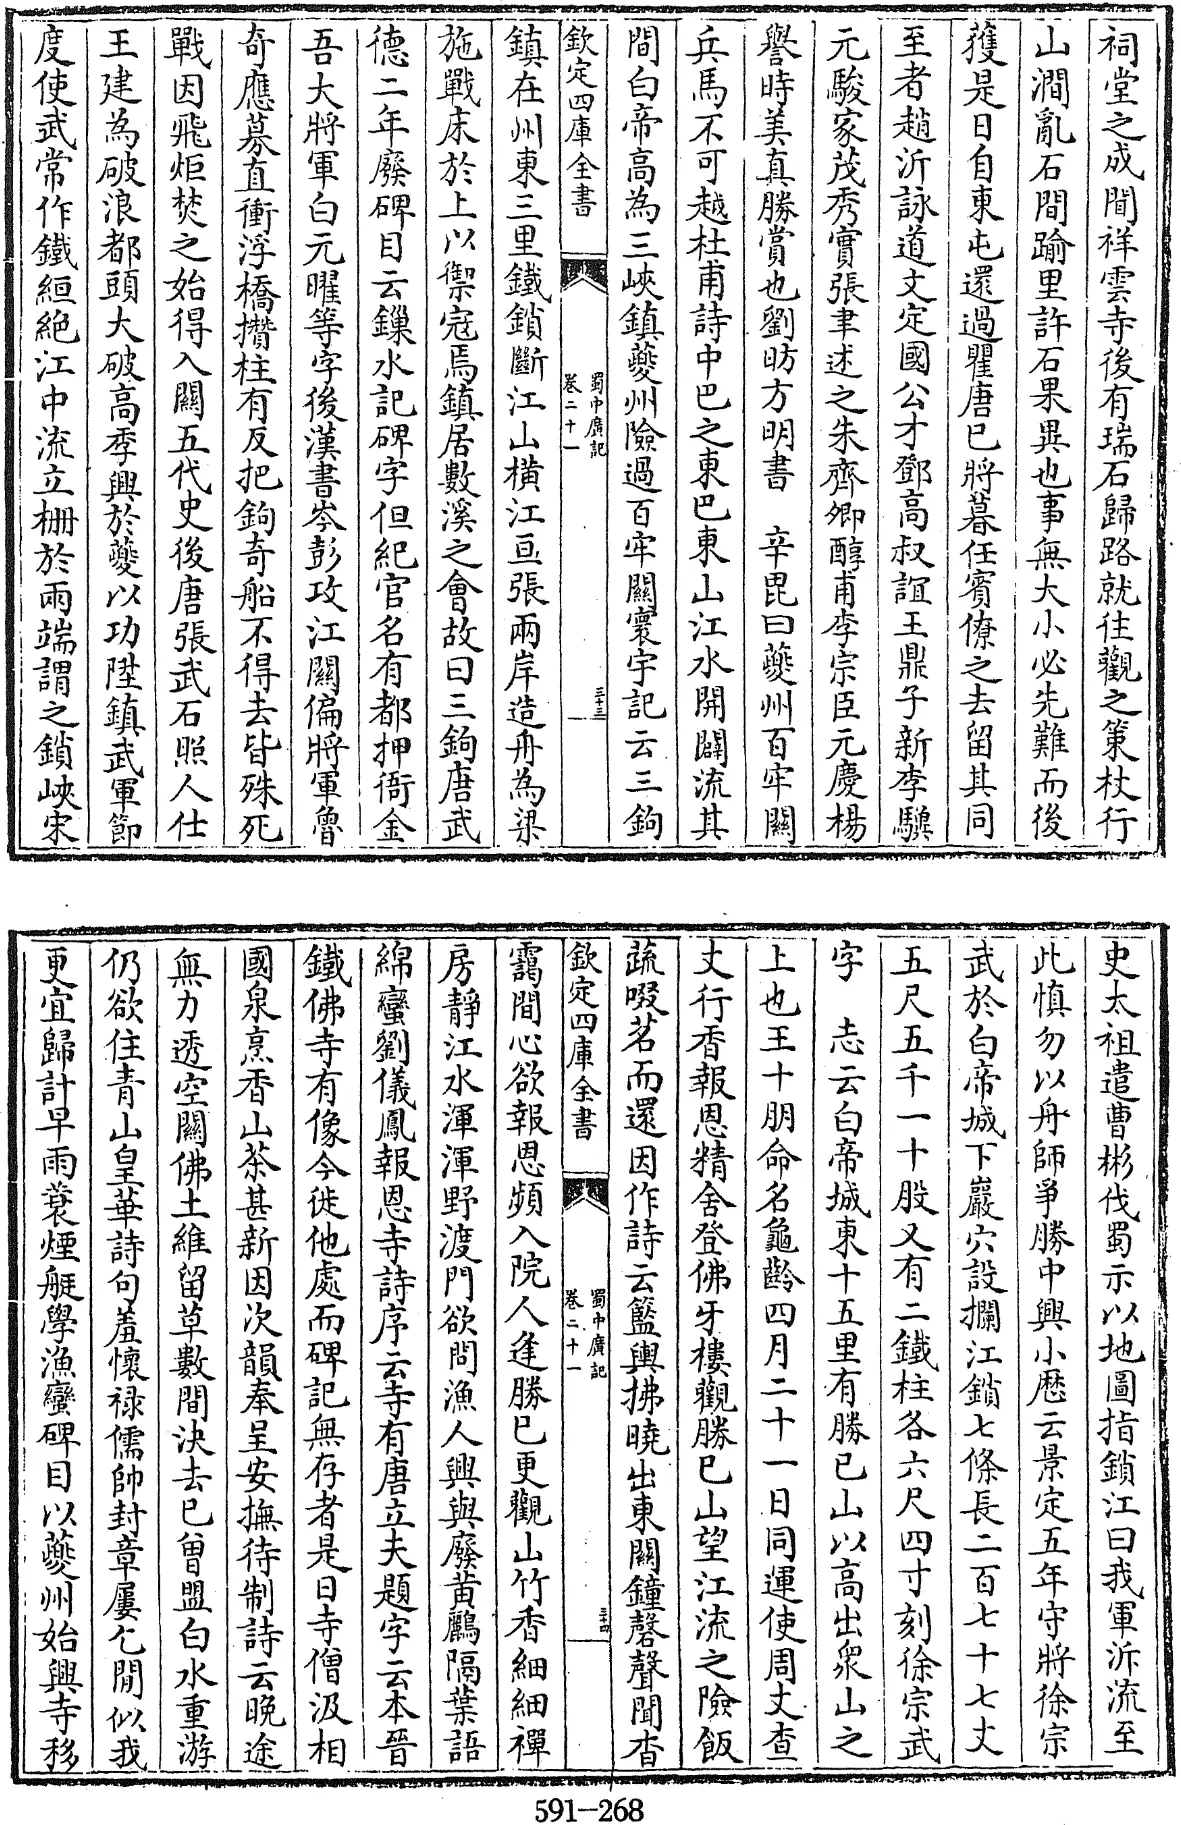 祠堂之成聞祥雲寺後有瑞石歸路就往觀之策杖行
山澗亂石間踰里許石果異也事無大小必先難而後
獲是日自東屯還過瞿唐已將暮任賓僚之去留其同
至者趙沂詠道文定國公才鄧高叔誼王鼎子新李驥
元駿家茂秀實張聿述之朱齊卿醇甫李宗臣元慶楊
譽時美真勝賞也劉昉方明書　辛毘曰夔州百牢關
兵馬不可越杜甫詩中巴之東巴東山江水開闢流其
間白帝高為三峽鎮夔州險過百牢關寰宇記云三鉤
欽定四庫全書
蜀中廣記
卷二十一
三十三
鎮在州東三里鐵鎖斷江山橫江亘張兩岸造舟為梁
施戰床於上以禦寇焉鎮居數溪之會故曰三鉤唐武
德二年廢碑目云鏁水記碑字但紀官名有都押衙金
吾大將軍白元曜等字後漢書岑彭攻江關偏將軍魯
奇應募直衝浮橋攢柱有反把鉤奇船不得去皆殊死
戰因飛炬焚之始得入關五代史後唐張武石照人仕
王建為破浪都頭大破高季興於夔以功陞鎮武軍節
度使武常作鐵絙絶江中流立柵於兩端謂之鎖峽宋
史太祖遣曹彬伐蜀示以地圖指鎖江曰我軍泝流至
此慎勿以舟師爭勝中興小厯云景定五年守將徐宗
武於白帝城下巖穴設攔江鎖七條長二百七十七丈
五尺五千一十股又有二鐵柱各六尺四寸刻徐宗武
字　志云白帝城東十五里有勝已山以高出衆山之
上也王十朋命名龜齡四月二十一日同運使周丈查
丈行香報恩精舍登佛牙樓觀勝已山望江流之險飯
蔬啜茗而還因作詩云籃輿拂曉出東關鐘磬聲聞杳
欽定四庫全書
蜀中廣記
卷二十一
三十四
靄間心欲報恩頻入院人逢勝已更觀山竹香細細禪
房靜江水渾渾野渡門欲問漁人興與廢黄鸝隔葉語
綿蠻劉儀鳳報恩寺詩序云寺有唐立夫題字云本晉
鐵佛寺有像今徙他處而碑記無存者是日寺僧汲相
國泉烹香山茶甚新因次韻奉呈安撫待制詩云晚途
無力透空關佛土維留草數間決去已曾盟白水重游
仍欲住青山皇華詩句羞懷禄儒帥封章屢乞閒似我
更宜歸計早雨蓑煙艇學漁蠻碑目以夔州始興寺移
591-268